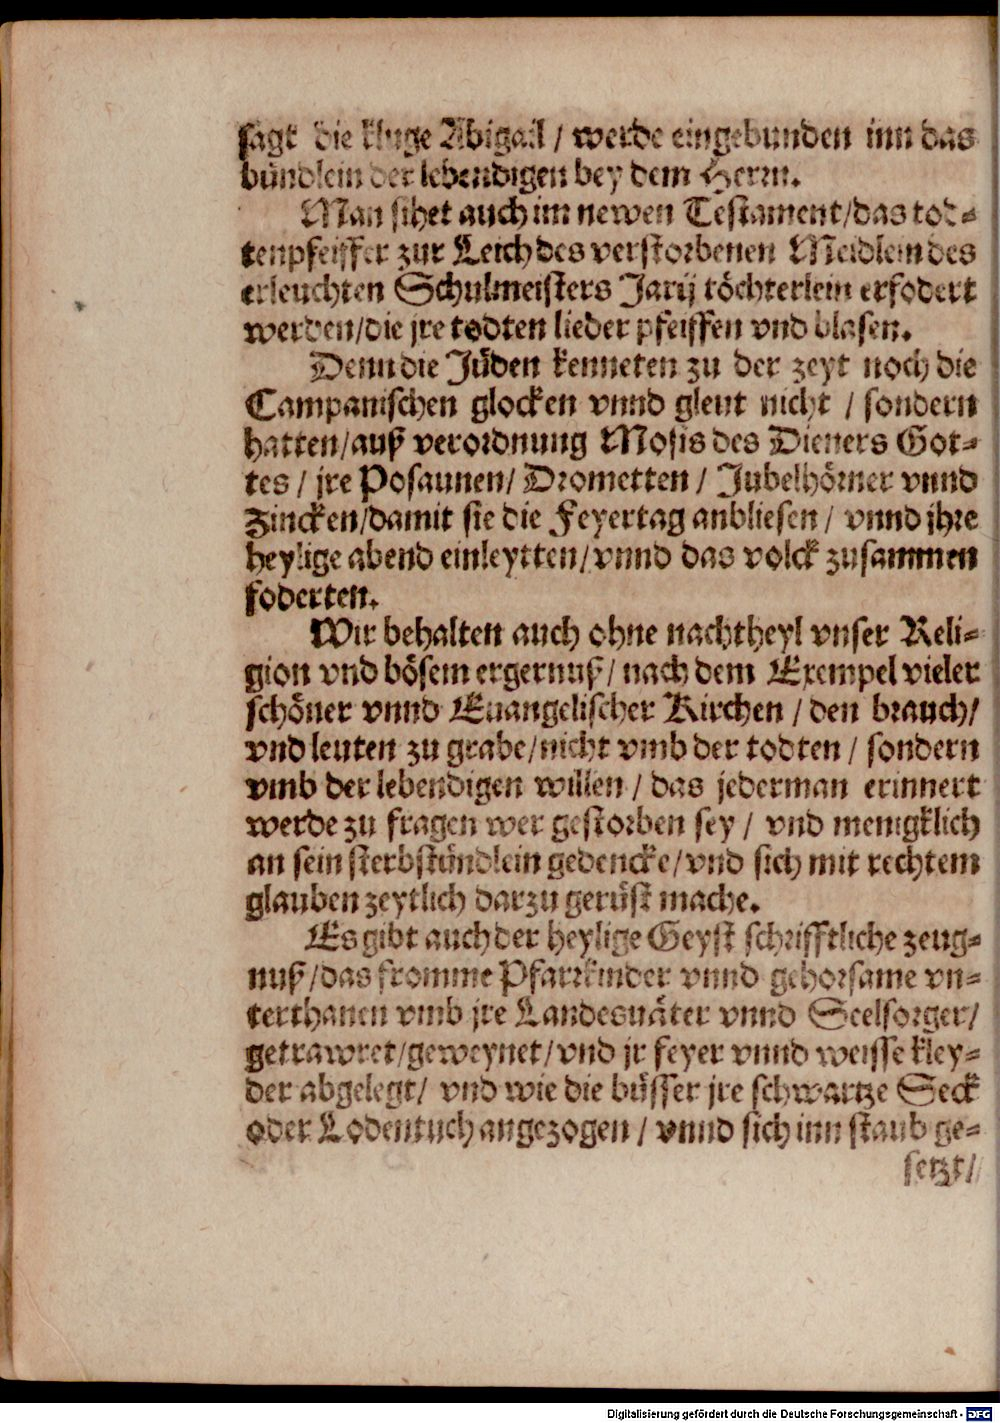 sagt die kluge Abigail / werde eingebunden inn das
bündlein der lebendigen bey dem Herrn.
Man sihet auch im newen Testament/das tod-
tenpfeiffer zur Leich des verstorbenen Meidlein des
erleuchten Schulmeisters Jarij töchterlein erfodert
werden/die jre todten lieder pfeiffen vnd blasen.
Denn die Jüden kenneten zu der zeyt noch die
Campanischen glocken vnnd gleut nicht / sondern
hatten/auß verordnung Mosis des Dieners Got-
tes / jre Posaunen/ Drometten / Jubelhörner vnnd
Zincken/damit sie die Feyertag anbliesen / vnnd jhre
heylige abend einleytten/vnnd das volck zusammen
foderten.
Wir behalten auch ohne nachtheyl vnser Reli-
gion vnd bösem ergernuß/ nach dem Exempel vieler
schöner vnnd Euangelischer Kirchen / den brauch/
vnd leuten zu grabe/nicht vmb der todten / sondern
vmb der lebendigen willen / das jederman erinnert
werde zu fragen wer gestorben sey / vnd menigklich
an sein sterbstündlein gedencke/vnd sich mit rechtem
glauben zeytlich darzu gerüst mache.
Es gibt auch der heylige Geyst schrifftliche zeug-
nuß/das fromme Pfarrkinder vnnd gehorsame vn-
terthanen vmb jre Landesuäter vnnd Seelsorger/
getrawret/geweynet/vnd jr feyer vnnd weisse kley-
der abgelegt/ vnd wie die büsser jre schwartze Seck
oder Lodentuch angezogen / vnnd sich inn staub ge-
setzt/
Digitalisierung gefördert durch die Deutsche Forschungsgemeinschaft - DFG